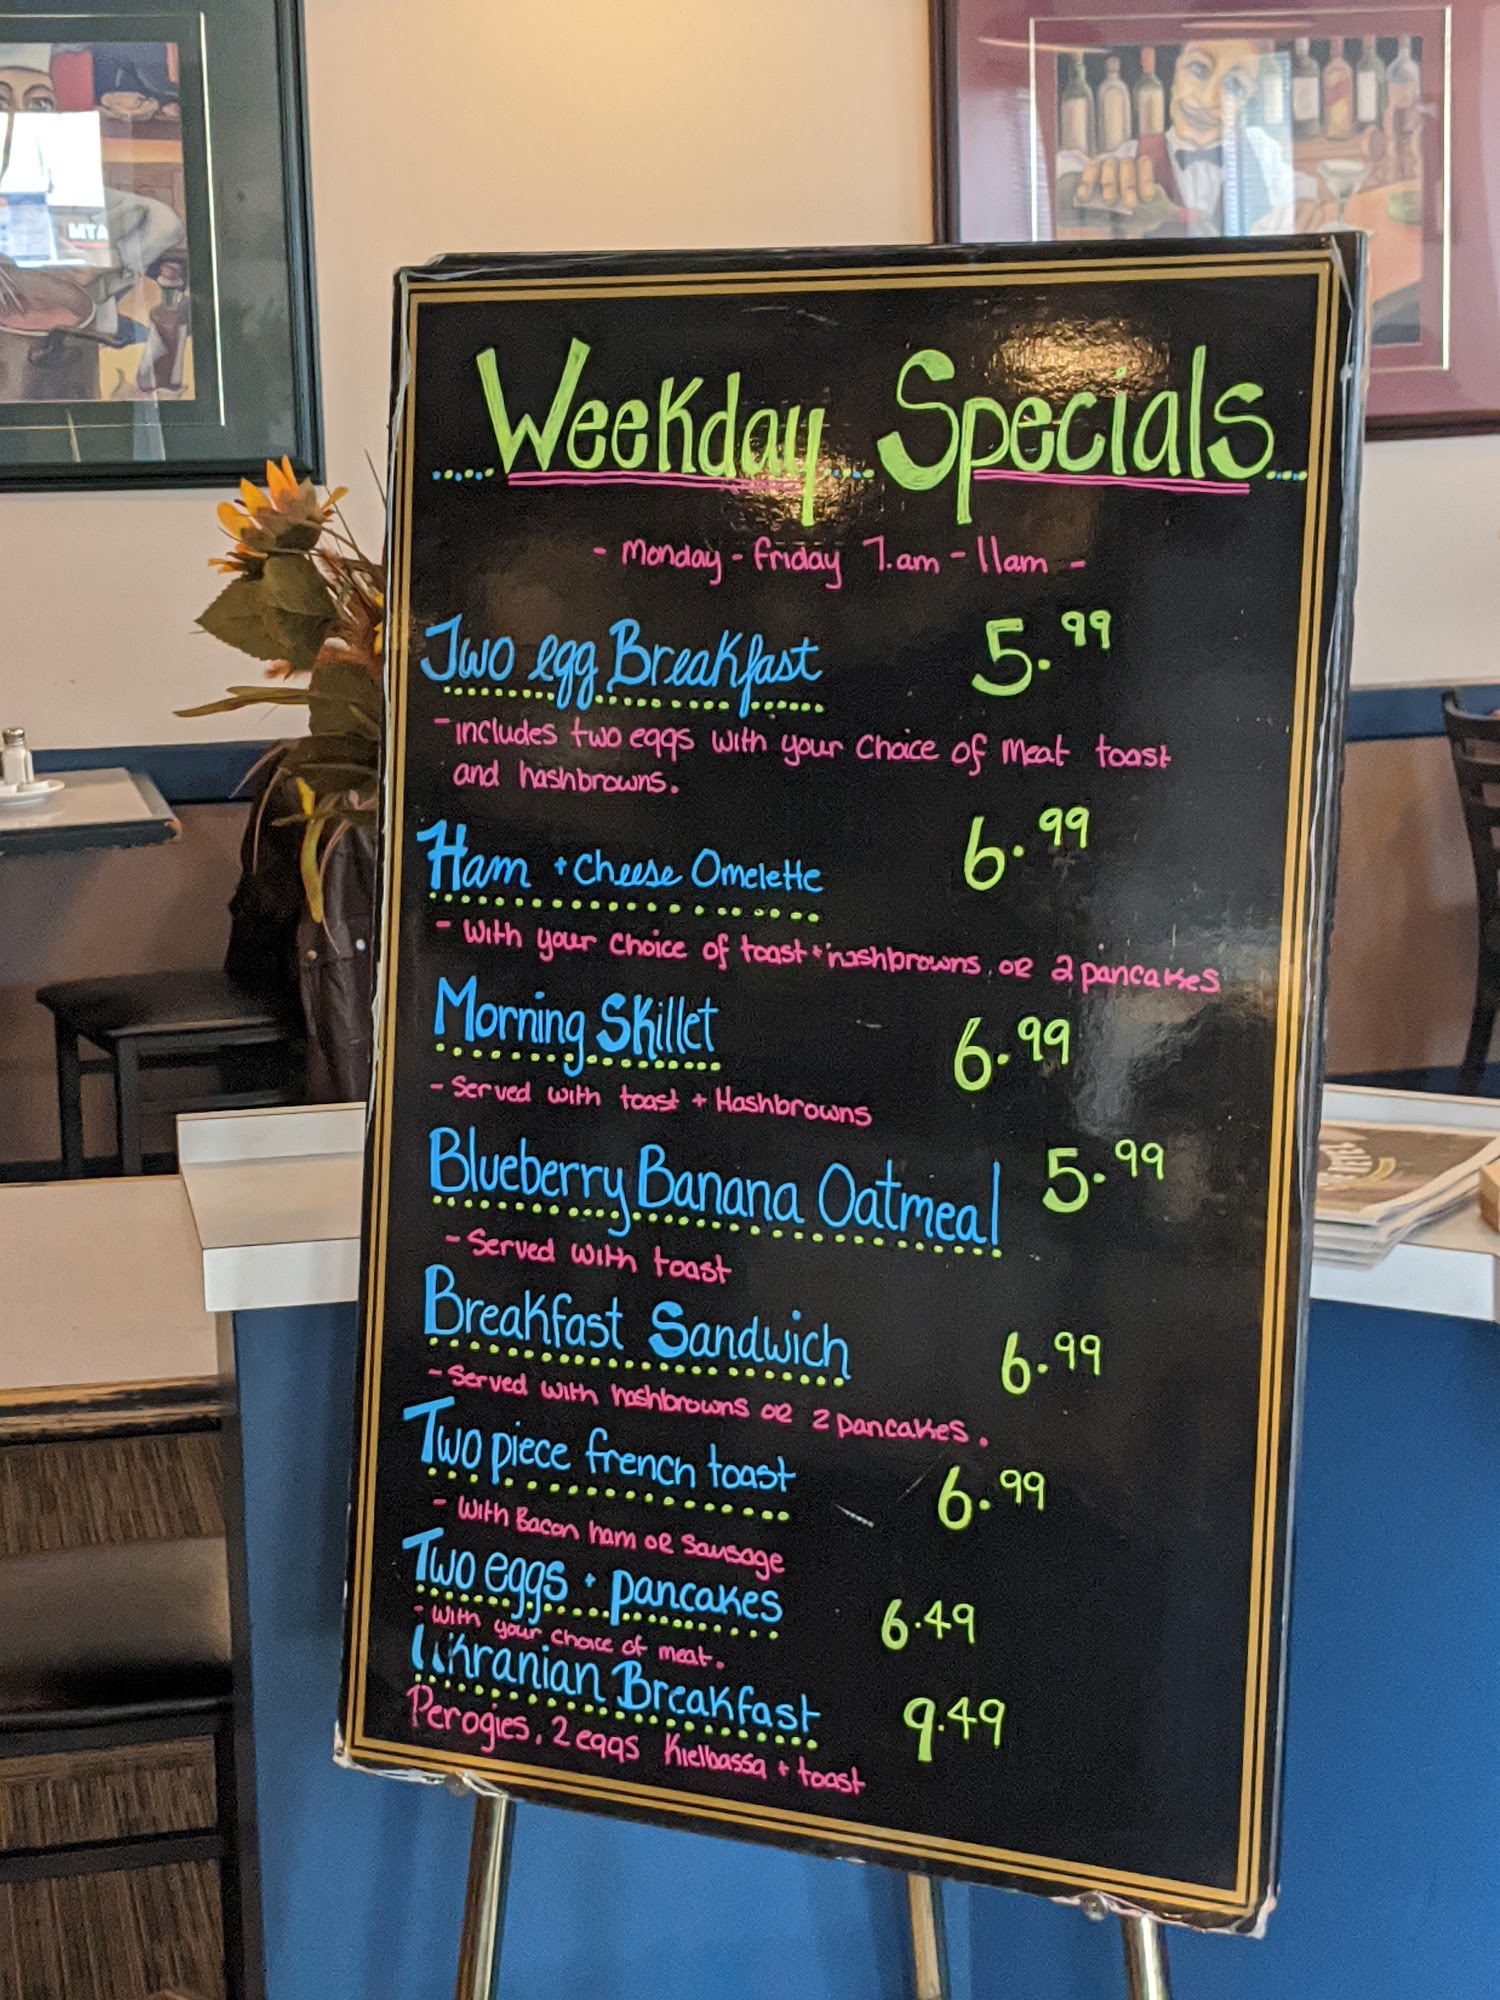 Weekday Specials
- Monday - Friday 7.am - 11am -
Two egg Breakfast 5.99
- includes two eggs with your choice of meat toast
and hashbrowns.
Ham + Cheese Omelette 6.99
- With your choice of toast + hashbrowns. or 2 pancakes
Morning Skillet 6.99
- Served with toast + Hashbrowns
Blueberry Banana Oatmeal 5.99
- Served with toast
Breakfast Sandwich 6.99
- Served with hashbrowns or 2 pancakes.
Two piece french toast 6.99
- With Bacon ham or Sausage
Two eggs + pancakes 6.49
- With your choice of meat.
Ukranian Breakfast 9.49
Perogies, 2 eggs Kielbassa + toast
ATM